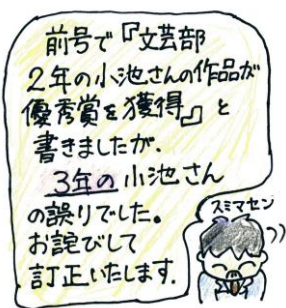 前号で『文芸部
2年の小池さんの作品が
優秀賞を獲得』と
書きましたが、
3年の小池さん
の誤りでした。
お詫びして
訂正いたします。
スミマセン